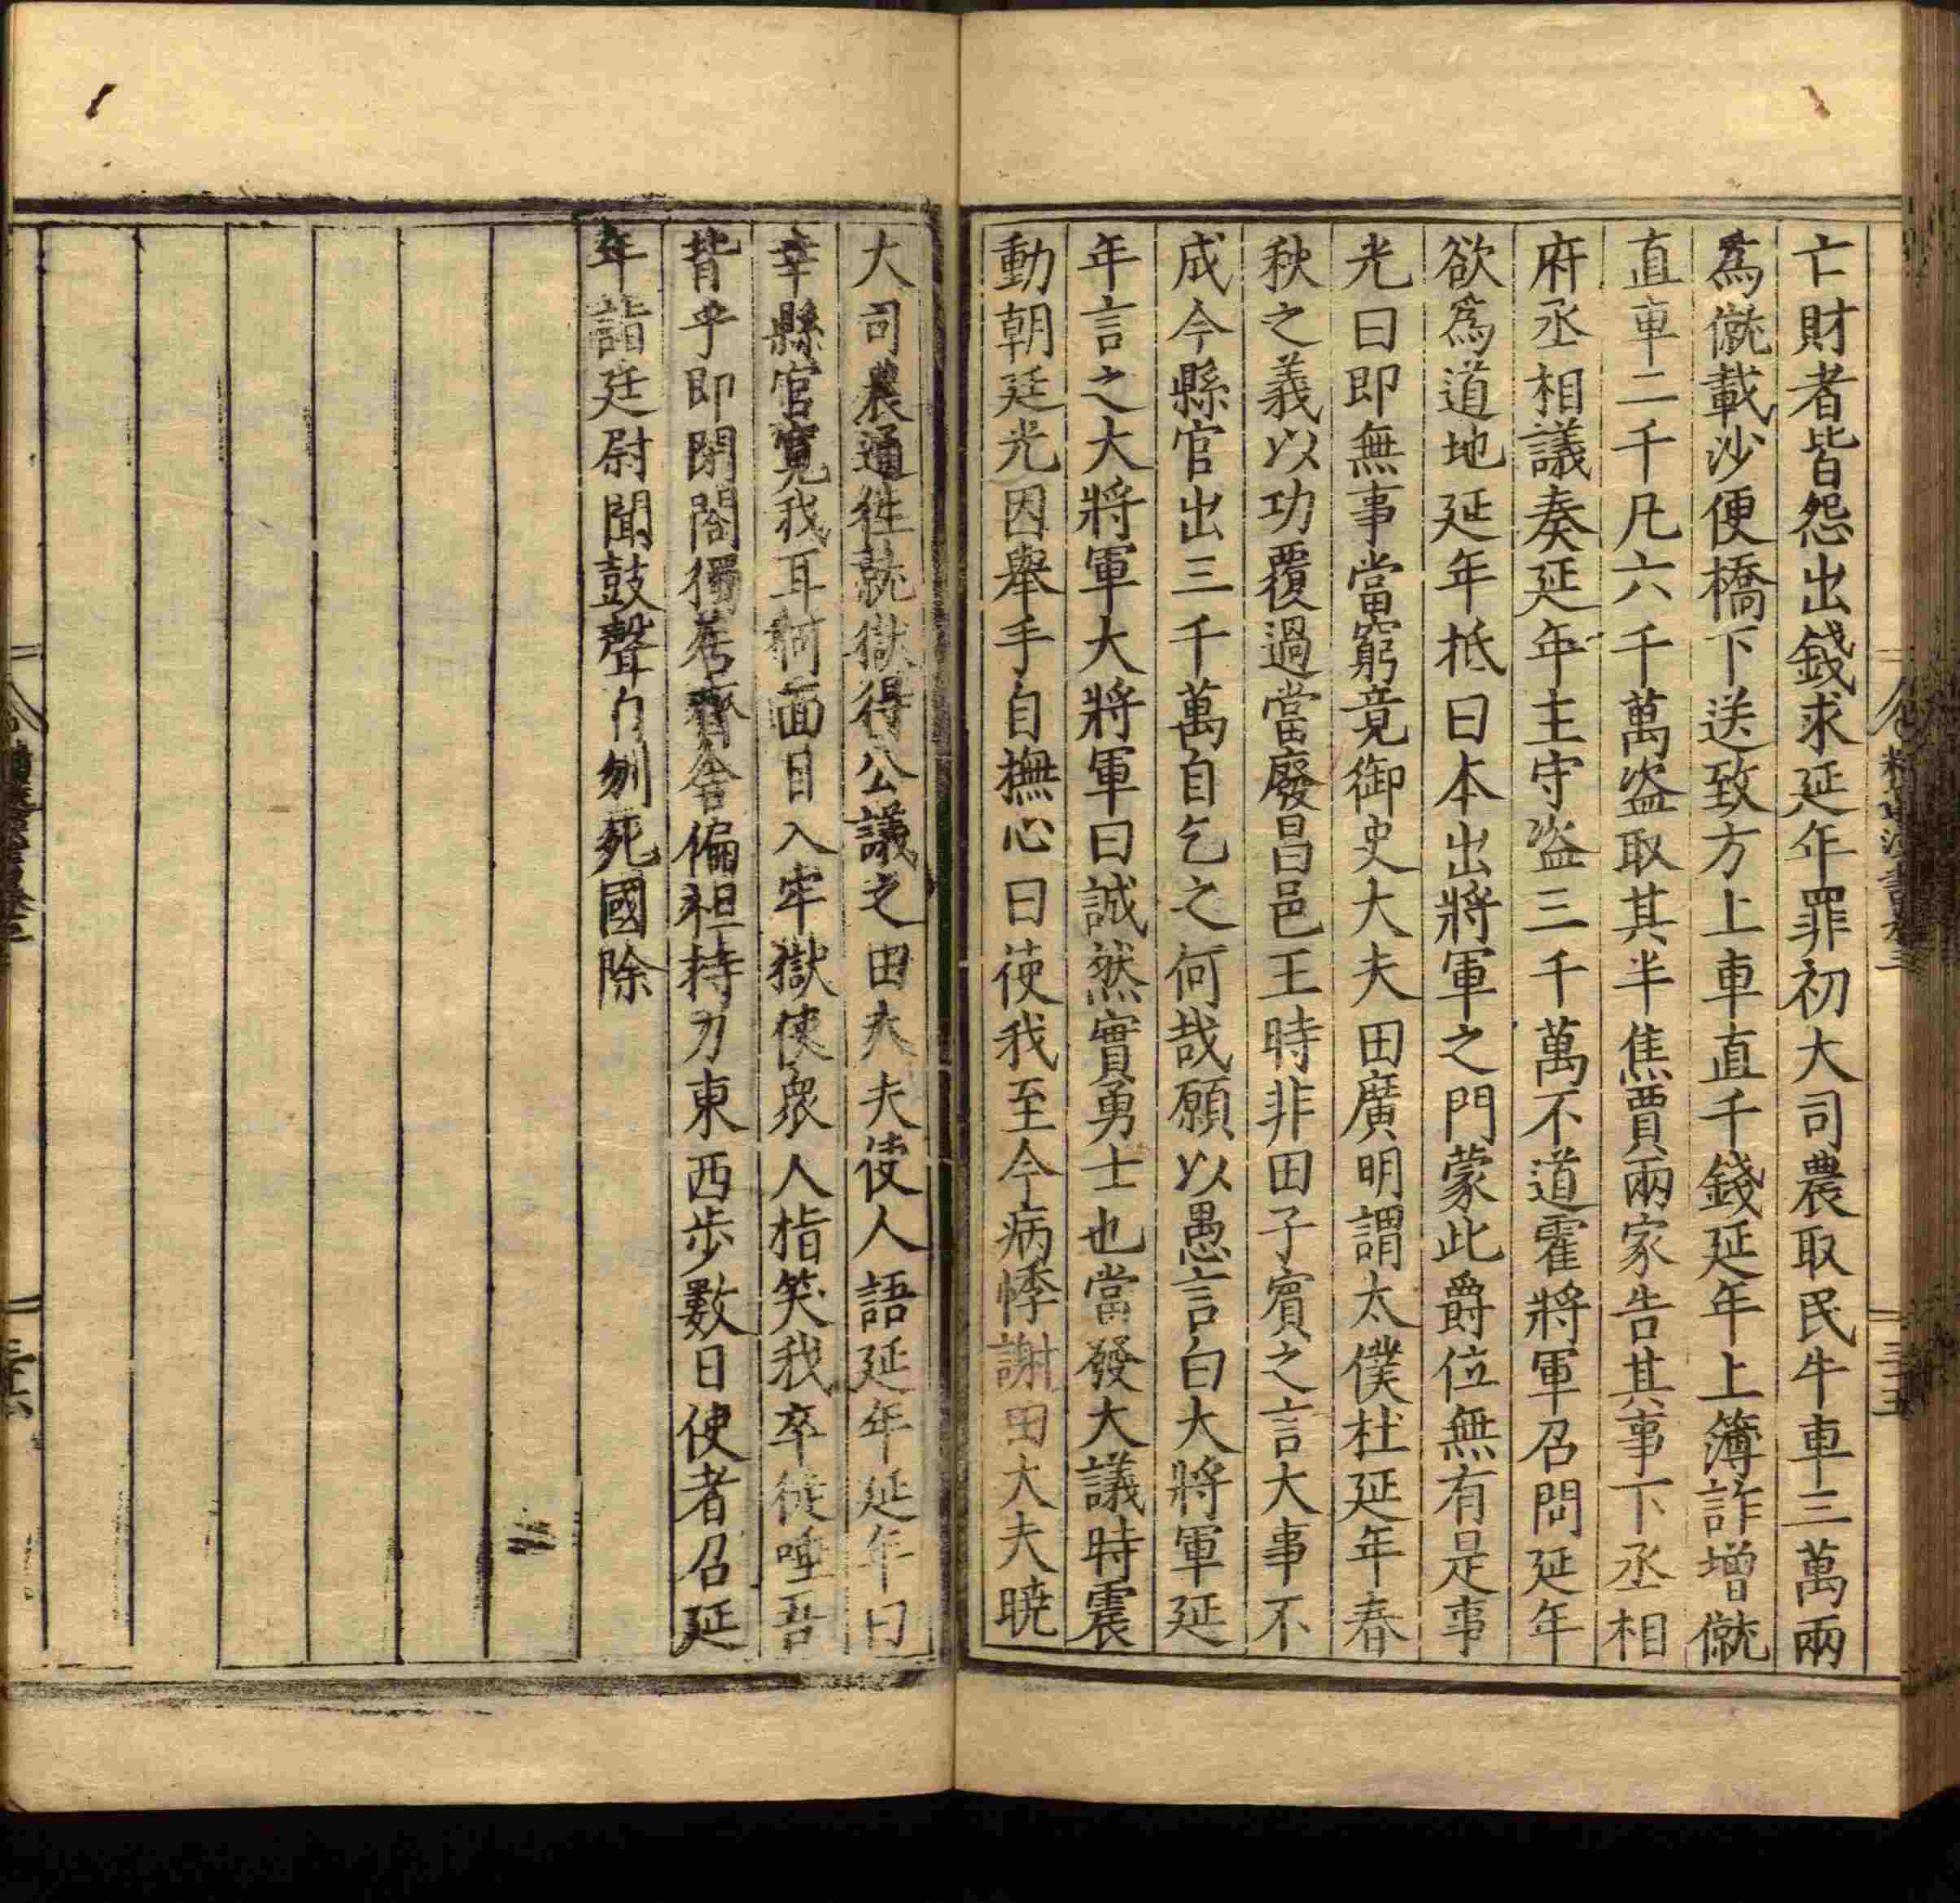 亡財者皆怨出錢求延年罪初大司農取民牛車三萬兩
為僦載沙便橋下送致方上車直千錢延年上簿詐增僦
直車二千凡六千萬盜取其半焦賈兩家告其事下丞相
府丞相議奏延年主守盜三千萬不道霍將軍召問延年
欲為道地延年抵曰本出將軍之門蒙此爵位無有是事
光曰即無事當窮竟御史大夫田廣明謂太僕杜延年春
秋之義以功覆過當廢昌邑王時非田子賓之言大事不
成今縣官出三千萬自乞之何哉願以愚言白大將軍延
年言之大將軍大將軍曰誠然實勇士也當發大議時震
動朝廷光因舉手自撫心曰使我至今病悸謝田大夫曉
大司農通徃就獄得公議之田大夫使人語延年延年曰
幸縣官寬我耳何面目入牢獄使衆人指笑我卒徒唾吾
背乎即閉閤獨居齊舍偏袒持刀東西步數日使者召延
年詣廷尉聞鼓聲自刎死國除
三十五